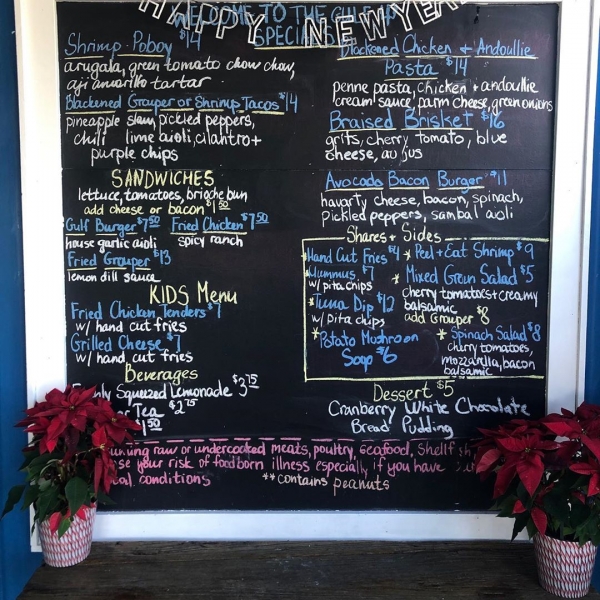 HAPPY NEW YEAR
WELCOME TO THE GULF
SPECIALS
Shrimp Poboy $14
arugala, green tomato chow chow,
aji amarillo tartar
Blackened Grouper or Shrimp Tacos $14
pineapple slaw, pickled peppers,
chili lime aioli, cilantro +
purple chips
Blackened Chicken + Andoullie
Pasta $14
penne pasta, chicken + andoullie
cream sauce, parm cheese, green onions
Braised Brisket $16
grits, cherry tomato, blue
cheese, au jus
Avocado Bacon Burger $11
havarty cheese, bacon, spinach,
pickled peppers, sambal aioli
SANDWICHES
lettuce, tomatoes, brioche bun
add cheese or bacon $1.50
Gulf Burger $7.50 Fried Chicken $7.50
house garlic aioli spicy ranch
Fried Grouper $13
lemon dill sauce
KIDS Menu
Fried Chicken Tenders $7
w/ hand cut fries
Grilled Cheese $7
w/ hand cut fries
Beverages
Squeezed Lemonade $3.75
Tea $2.75
$1.50
Shares + Sides
*Hand Cut Fries $4
*Hummus $7
w/ pita chips
*Tuna Dip $12
w/ pita chips
*Potato Mushroom
Soup $6
*Peel + Eat Shrimp $9
*Mixed Green Salad $5
cherry tomatoes + creamy
balsamic
add Grouper $8
*Spinach Salad $8
cherry tomatoes,
mozzarella, bacon
balsamic
Dessert $5
Cranberry White Chocolate
Bread Pudding
raw or undercooked meats, poultry, seafood, shellf
your risk of foodborn illness especially if you have
conditions **contains peanuts